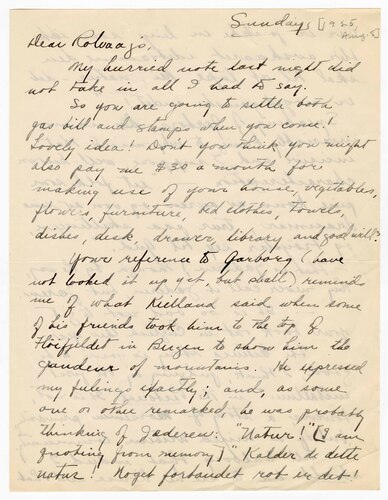 Sunday, [1925
Aug. 5]
Dear Rolvaags,
My hurried note last night did
not take in all I had to say.
So you are going to settle both
gas bill and stamps when you come!
Lovely idea! Don't you think you might
also pay me $30 a month for
making use of your house, vegetables,
flowers, furniture, bed clothes, towels,
dishes, desk, drawer, library and good will?
Your reference to Garborg (have
not looked it up yet, but shall) reminds
me of what Kielland said when some
of his friends took him to the top of
Höifjeldet in Bergen to show him the
grandeur of mountains. He expressed
my feelings exactly; and, as some
one or other remarked, he was probably
thinking of Jæderen: "Natur!" [I am
quoting from memory] "Kalder de dette
natur! Noget forbandet rot er det!